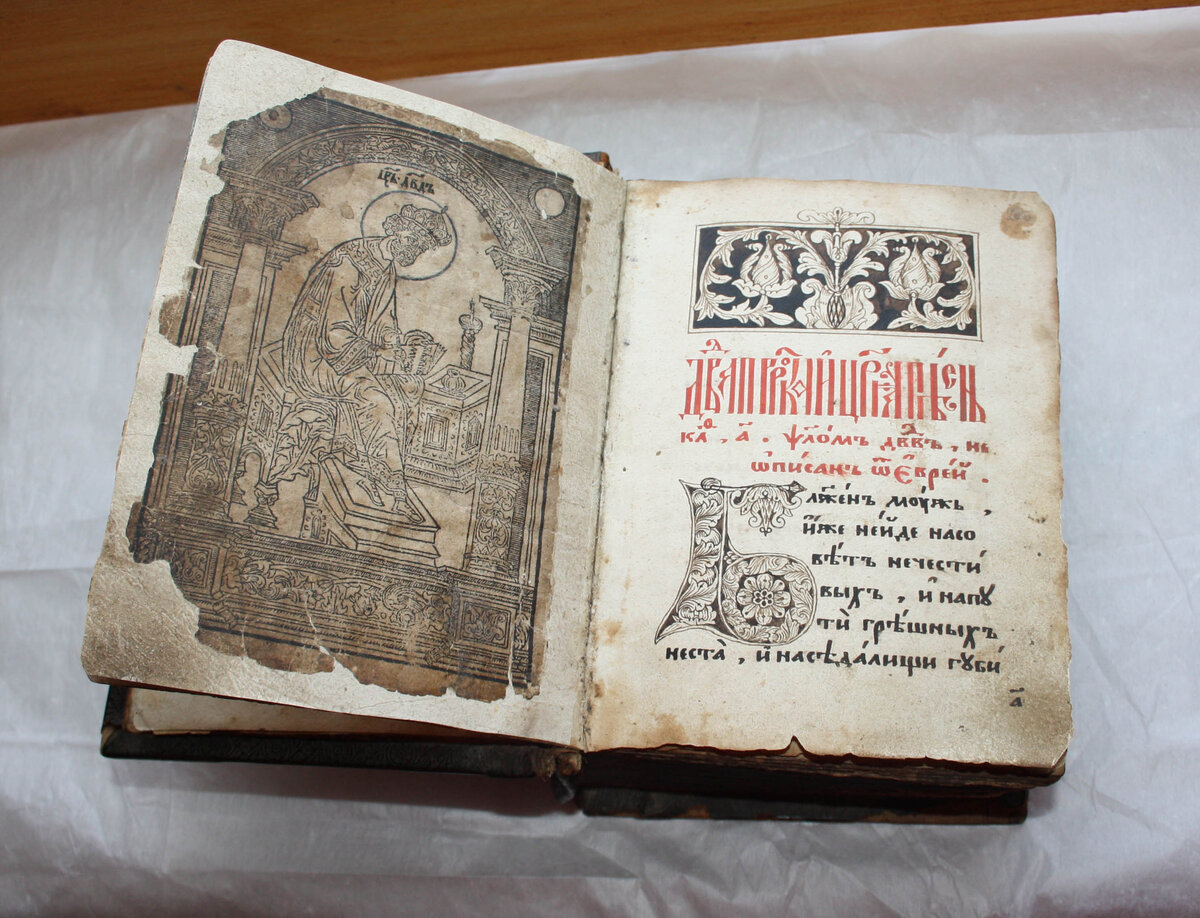 црь двдъ
Дв҃а прⷪ҇ро́ка и҆ цр҃ѧ̀ пѣ́сн
каⷴ҇, а҃. ѱⷧ҇о́мъ дв҃въ, не
ѡ҆пи́санъ ѿ є҆вре́й.
Блж҃е́нъ моу́жъ,
и҆́же не и҆́де на со
вѣ́тъ нечести́
выхъ, и҆ на пꙋ
тѝ грѣ́шныхъ
не ста̀, и҆ на сѣда́лищи гꙋби́
а҃